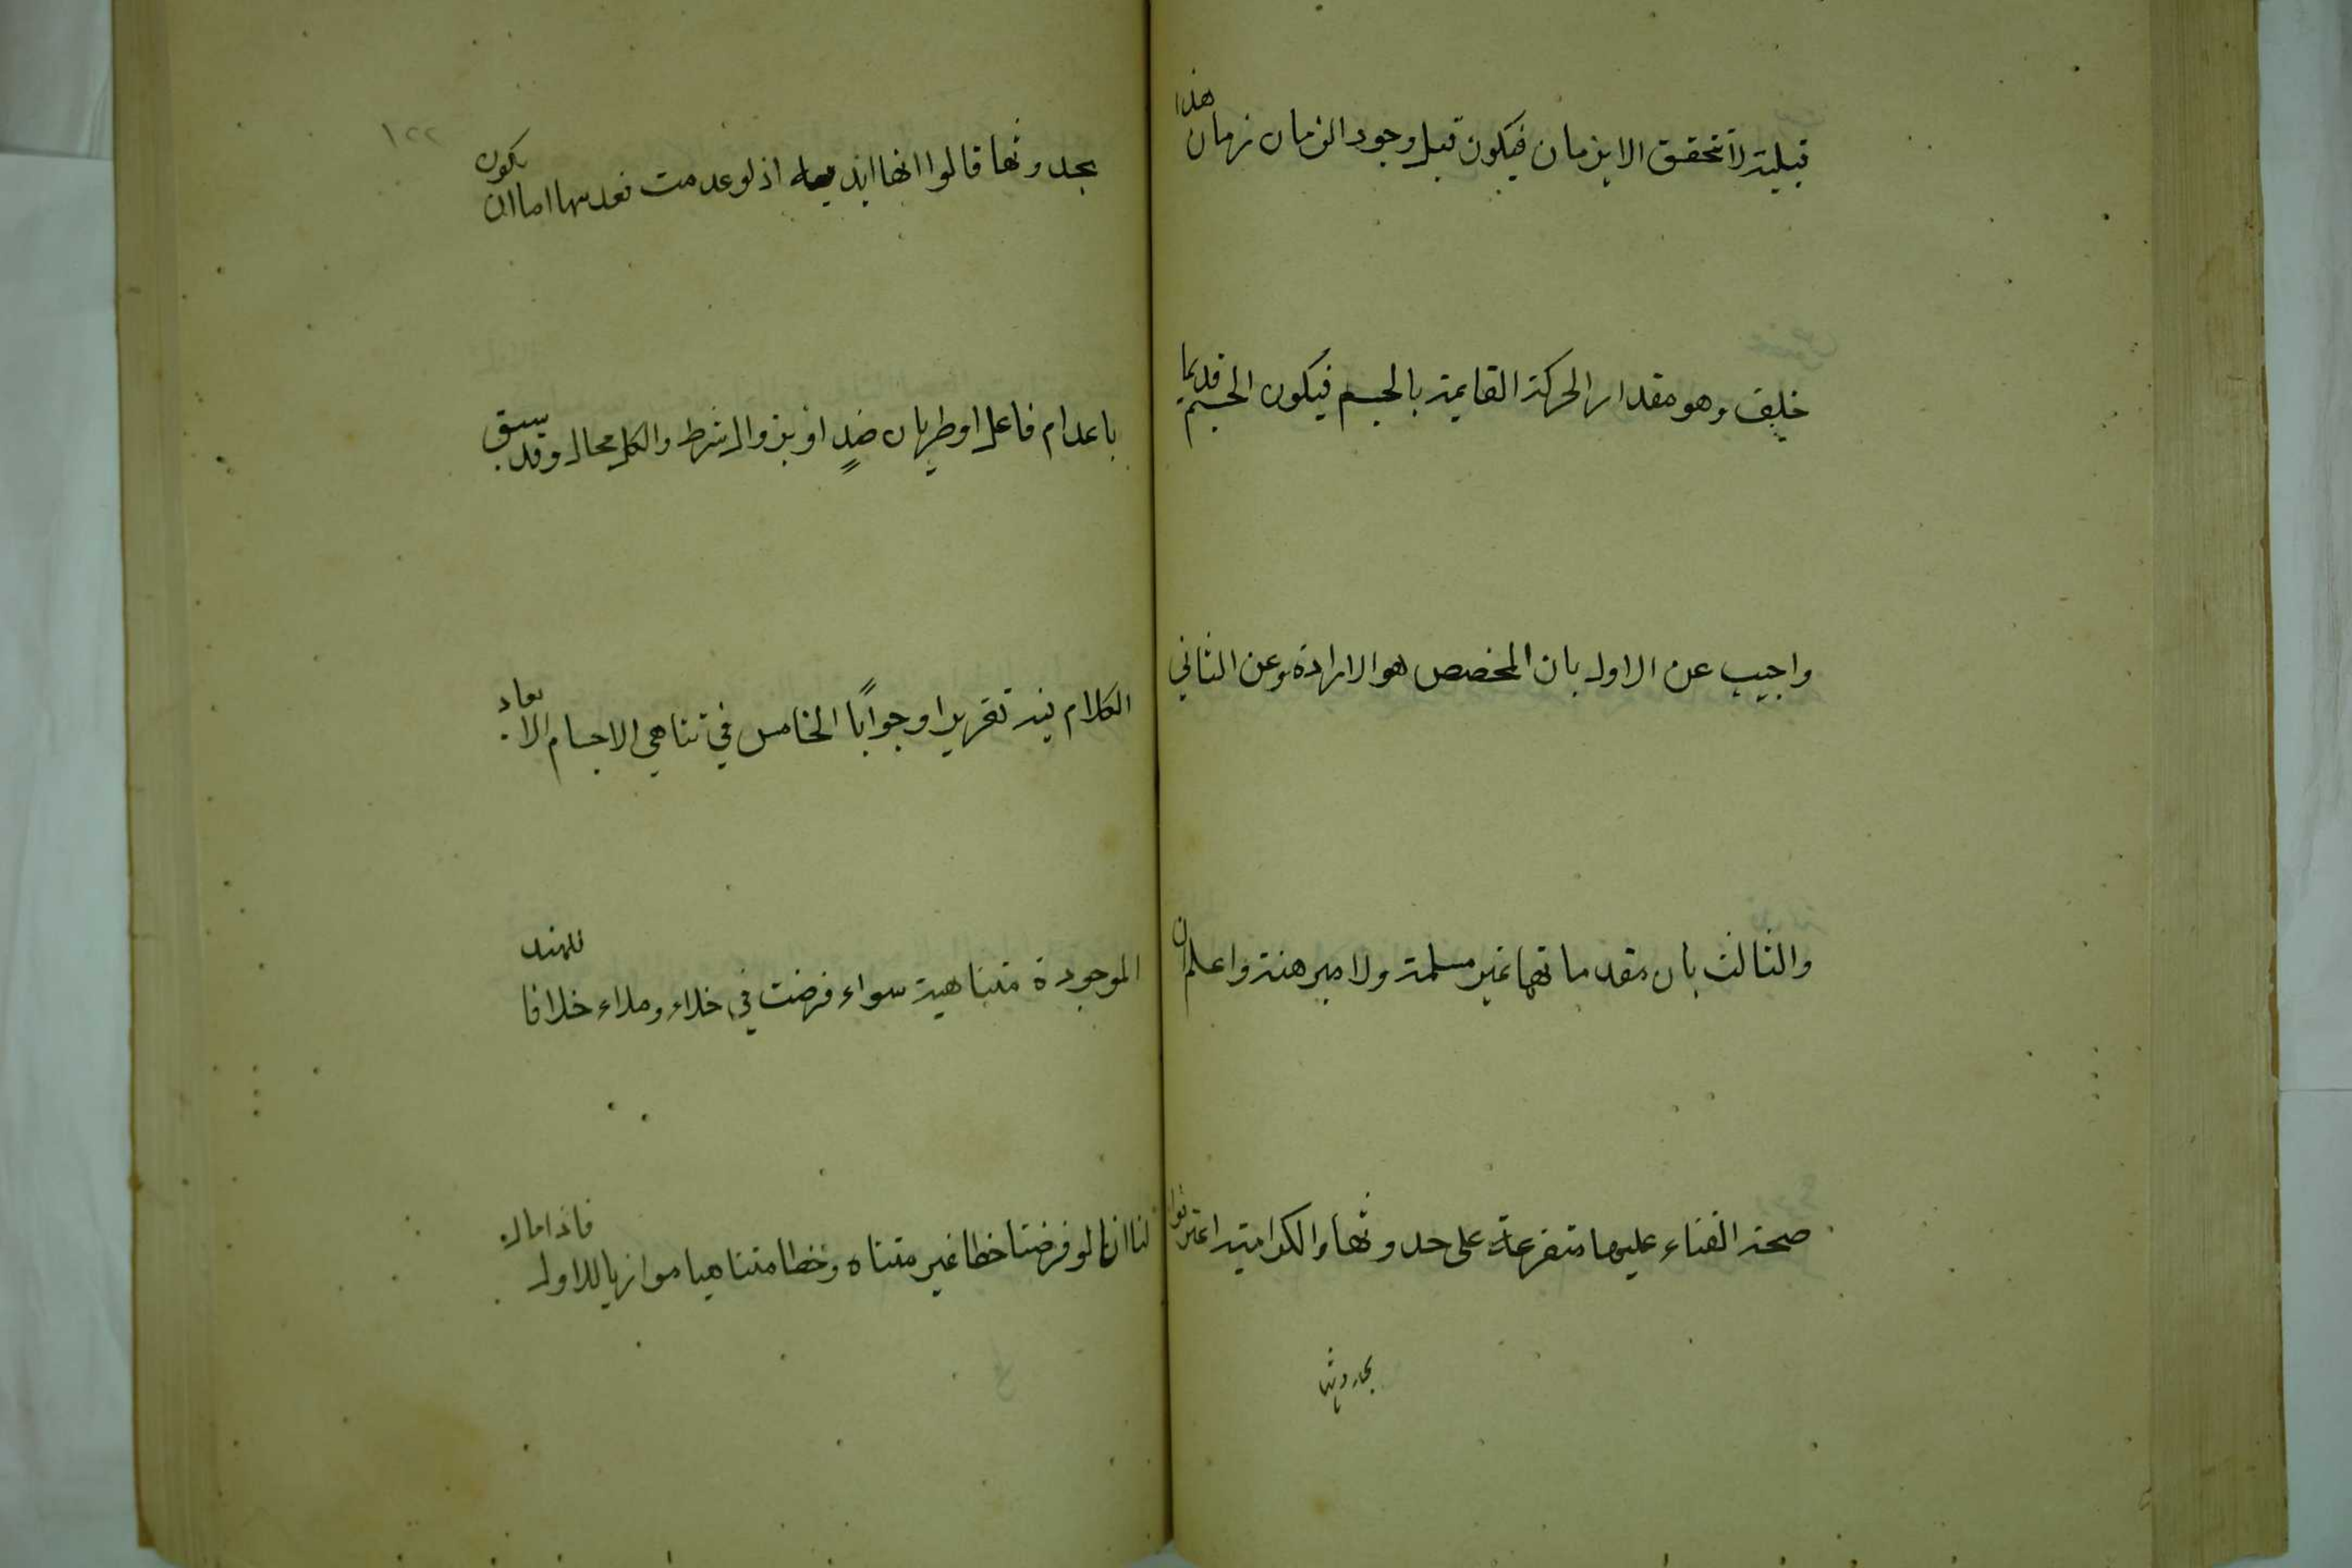 قبلية لا تتحقق الا بزمان فيكون قبل وجود الزمان زمان هذا
خلف وهو مقدار الحركة القايمة بالجسم فيكون الجسم قديما
واجيب عن الاول بان المخصص هو الارادة وعن الثاني
والثالث بان مقدماتهما غير مسلمة ولا مبرهنة واعلم ان
صحة الفناء عليها متفرعة على حدوثها والكرامية اعترفوا
بحدوثها
١٢٢
بحدوثها قالوا انها ابدية اذ لو عدمت فعدمها اما ان يكون
باعدام فاعل او طريان ضدٍ او بزوال شرط والكل محال وقد سبق
الكلام فيه تقريرا وجوابًا الخامس في تناهي الاجسام الابعاد
الموجودة متناهية سواء فرضت في خلاء وملاء خلافا للهند
لنا انا لو فرضنا خطا غير متناه وخطا متناهيا موازيا للاول فاذا مال